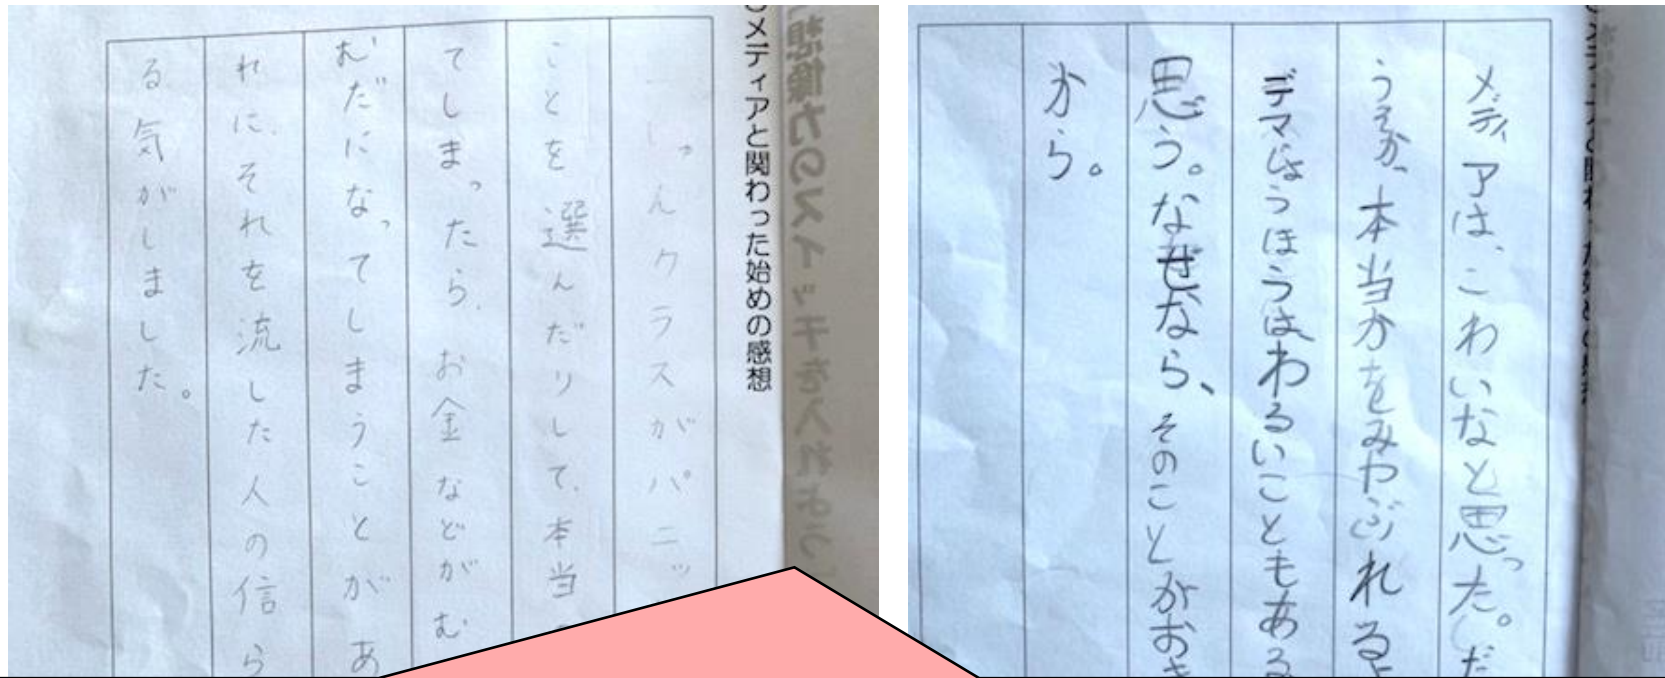 想像力のスイッチを入れよう
○メディアと関わった始めの感想
んクラスがパニッ
ことを選んだりして、本当
てしまったら、お金などがむ
むだになってしまうことがあ
れに、それを流した人の信ら
る気がしました。
メディアは、こわいなと思った。だ
うそか、本当かをみやぶれる
デマじょうほうはわるいこともある
思う。なぜなら、そのことがおき
から。